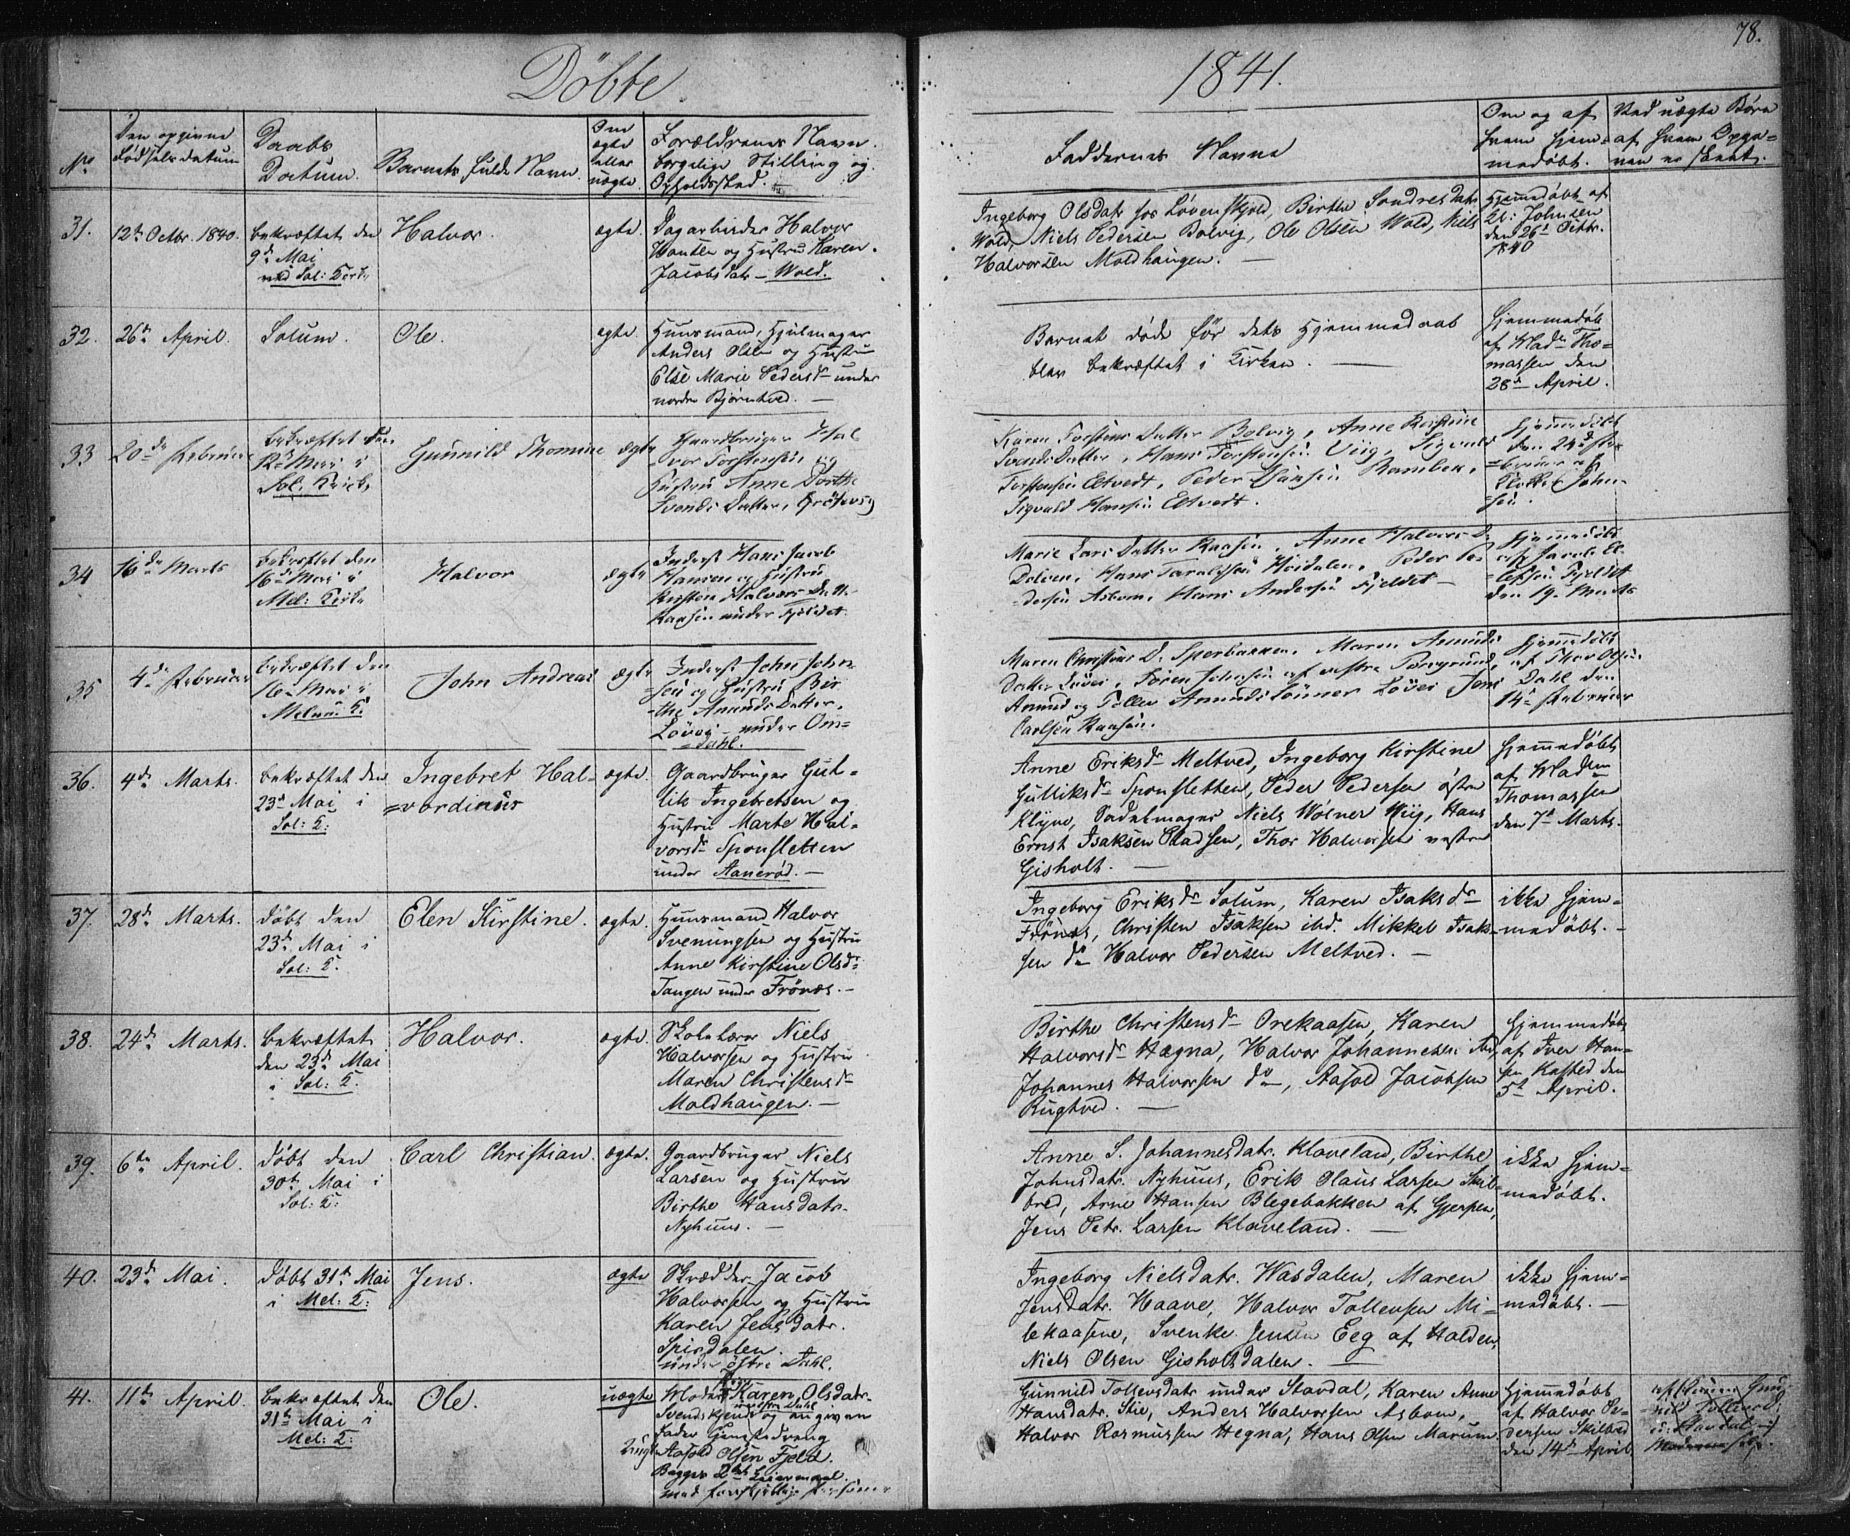 Døbte.
1841.
78.
No
Den opgivne
Fødsels datum
Daabs
Datum.
Barnets fulde Navn.
Om
ægte
eller
uægte.
Forældrenes Navn.
borgelige Stilling og
Opholdssted.
Faddernes Navne
Om og af
hvem hjem-
medøbt.
Ved uægte Børn
af hvem Opga-
ven er skeet.
31.
12te Octbr. 1840.
bekræftet den
9de Mai
ved Sol: Kirke
Halvor.
ægte.
Dagarbeider Halvor
Hansen og Hustru Karen
Jacobsdatr. Wold.
Ingeborg Olsdatr. hos Løvenskjold, Birthe Sondresdatr.
Wold, Niels Pedersen Bolvig, Ole Olsen Wold, Niels
Halvorsen Moldhaugen. —
Hjemmedøbt af
Johnsen
den 26de Octbr.
1840
32.
26de April.
Solum.
Ole.
ægte.
Huusmand, Hjulmager
Anders Olsen og Hustru
Else Marie Pedersdr. under
nordre Bjørntved. —
Barnet døde før dets Hjemmedaab
blev bekræftet i Kirken. —
Hjemmedøbt
af Madm Tho-
massen den
28de April.
33
20de Februar
bekræftet den
Mai i
Sol: Kirke
Gunnild Thomine
ægte
Gaardbruger Hal
vor Torstensen og
Hustru Anne Dorthe
Svends Datter,
Karen Torstens Datter Bolvig, Anne Kirstine
Svends Datter, Hans Torstensen Viig, Sigvald
Torstensen Eltvedt, Peder Hansen Rambek,
Sigvald Hansen Eltvedt.
Hjemmedøbt
den 24de Fe-
bruar af
John-
sen
34
16de Marts
bekræftet den
16de Mai i
Mel: Kirke
Halvor
ægte
Inderst Hans Jacob
Hansen og Hustru
Kirsten Halvors Datt.
Kaasen under Fjeldet.
Marie Lars Datter Kaasen, Anne Halvors D.
Dolven, Hans Taraldsen Heidalen, Peder Pe-
dersen Asbom, Hans Andersen Fjeldet —
Hjemmedøbt
af Jacob El-
lefsen Fjeldet
den 19. Marts
35
4de Februar
bekræftet den
16de Mai i
Melum K.
John Andreas
ægte
Inderst John John
sen og Hustru Bir
the Amunds Datter,
Løvei under Om-
dahl.
Maren Christens D. Sperbakken, Maren Amunds
Datter Løvei, Søren Johnsen af vestre Porsgrund,
Amund og Tollev Amunds Sønner Løvei, Jens
Carlsen Kaasen.
Hjemmedøbt
af Thor Olsen
Dahl den
14de Februar
36.
4de Marts.
bekræftet den
23de Mai i
Sol: K.
Ingebret Hal-
vordinus
ægte.
Gaardbruger Gul-
lik Ingebretsen og
Hustru Marte Hal-
vorsdr. Sponsletten
under Aanerød. —
Anne Eriksdr. Meltved, Ingeborg Kirstine
Gulliksdr. Sponsletten, Peder Pedersen østre
Klyve, Sadelmager Niels Wølner Wiig, Hans
Ernst Isaksen Stadsen, Thor Halvorsen vestre
Gisholt. —
Hjemmedøbt
af Madm
Thomassen
den 7de Marts.
37.
28de Marts.
døbt den
23de Mai i
Sol: K.
Elen Kirstine.
ægte.
Huusmand Halvor
Svenungsen og Hustru
Anne Kirstine Olsdr.
Tangen under Frönæs. —
Ingeborg Eriksdr. Solum, Karen Isaksdr.
Frönæs, Christen Isaksen ibd. Mikkel Isak-
sen do Halvor Pedersen Meltved. —
ikke hjem-
medøbt. —
38.
24de Marts.
bekræftet
den 23de Mai
i Sol: K.
Halvor.
ægte.
Skolelærer Niels
Halvorsen og Hustru
Maren Christensdr.
Moldhaugen. —
Birthe Christensdr. Orekaasen, Karen
Halvorsdr. Hægna, Halvor Johannesen
Johannes Halvorsen do, Aasold Jacobsen
Rugtved. —
Hjemmedøbt
af Iver Han-
sen Kasted den
5te April.
39.
6te April.
døbt den
30te Mai i
Sol: K.
Carl Christian.
ægte.
Gaardbruger Niels
Larsen og Hustru
Birthe Hansdatr.
Nyhuus. —
Anne S. Johannesdatr. Klaveland, Birthe
Johnsdatr. Nyhuus, Erik Olaus Larsen Skil-
bred, Arne Hansen Blegebakken af Gjerpen,
Jens Petr. Larsen Klaveland. —
ikke hjem-
medøbt.
40.
23de Mai.
døbt 31te Mai
i Mel: K:
Jens.
ægte
Skrædder Jacob
Halvorsen og Hustru
Karen Jensdatr.
Spirdalen.
under østre Dahl.
Ingeborg Nielsdatr. Wasdalen, Maren
Jensdatr. Haave, Halvor Tollevsen Mi-
lekaasene, Svenke Jensen Eeg af Halden,
Niels Olsen Gisholtdalen. —
ikke hjem-
medøbt. —
41.
11te April.
bekræftet den
31te Mai i
Mel: K:
Ole.
uægte
Moder: Karen Olsdatr.
og angiven
Fader
Aasold Olsen Fjeld.
Begges 2det Leiermaal
med forskjellige Personer
Gunnild Tollevsdatr. under Stavdal, Karen Anne
Hansdatr. Stie, Anders Halvorsen Asbom,
Halvor Rasmussen Hegna, Hans Olsen Marum
Hjemmedøbt
af Halvor Pe-
dersen Skilbred
den 14de April